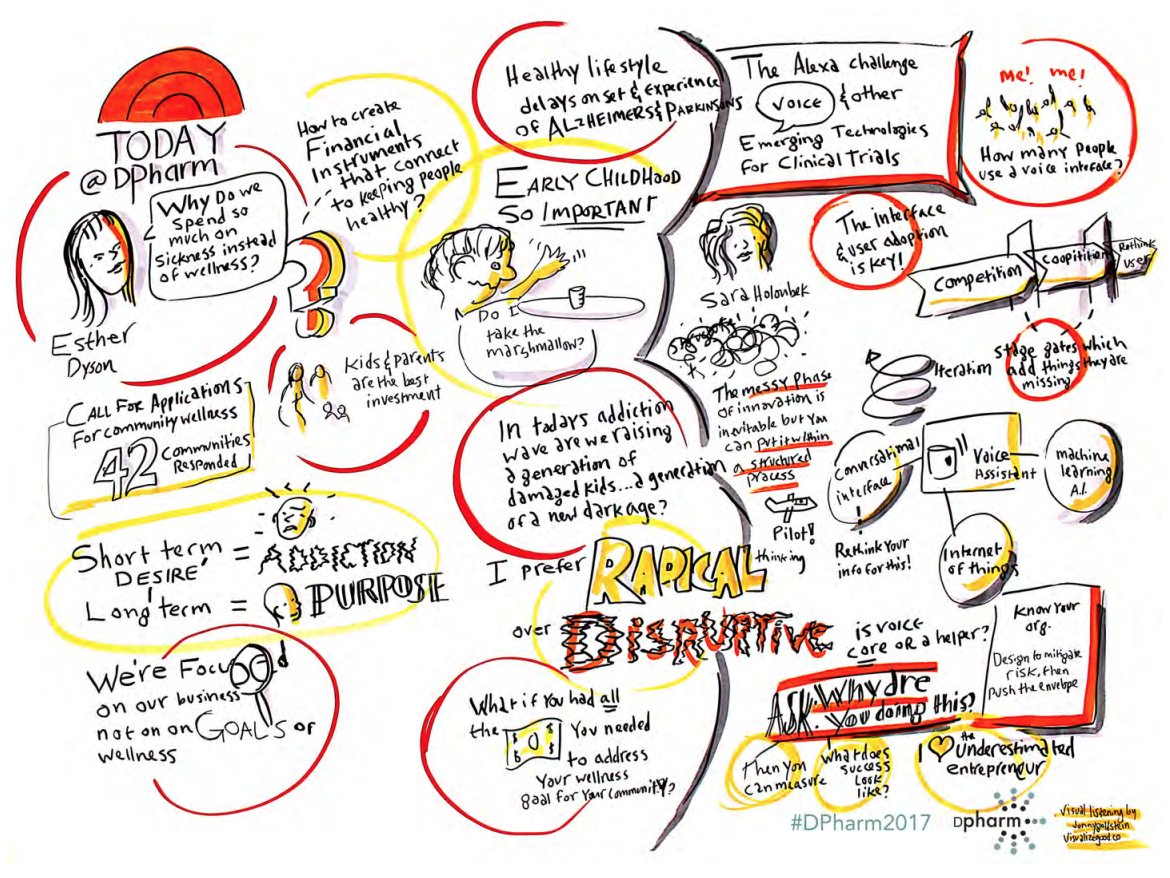 TODAY
@ DPharm
Why Do we
spend so
much on
sickness instead
of wellness?
Esther
Dyson
How to create
Financial
Instruments
that connect
to keeping people
healthy?
?
Kids & parents
are the best
investment
CALL For Applications
For community wellness
42 Communities
Responded
Short term = ADDICTION
DESIRE
Long term = PURPOSE
We're Focused
on our business
not on GOALS of
wellness
Healthy lifestyle
delays onset & experience
of ALZHEIMERS & PARKINSONS
EARLY CHILDHOOD
SO IMPORTANT
Do I
take the
marshmallow?
In todays addiction
wave are we raising
a generation of
damaged kids... a generation
of a new dark age?
I prefer RADICAL thinking
over DISRUPTIVE
What if you had all
the $ $ 0 $ $ you needed
to address
your wellness
goal for your community?
The Alexa challenge
VOICE & other
Emerging Technologies
For Clinical Trials
me! me!
How many people
use a voice interface?
Sara Holoubek
The interface
& user adoption
is key!
Competition
Coopitition
Rethink
User
Iteration
stage gates which
add things they are
missing
The messy phase
of innovation is
inevitable but you
can put it within
a structured
process
Pilot!
Conversational
interface
!
Rethink your
info for this!
Voice
Assistent
machine
learning
A.I.
Internet
of things
is voice
core or a helper?
Know your
org.
Design to mitigate
risk, then
push the envelope
ASK: Why are
you doing this?
Then you
can measure
what does
success
look
like?
I the
underestimated
entrepreneur
#DPharm2017
Dpharm
Visual listening by
jonnygoldstein
Visualizegood.co